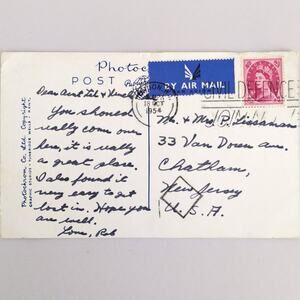 Photoc
POST
BY AIR MAIL
18 OCT
1954
CIVIL DEFENCE
Dear Aunt Lil &
You should
really come over
here, it is really
a great place.
I also found it
very easy to get
lost in. Hope you
are well.
Love, Rob
Photochrom Co. Ltd. Copyright
GRAPHIC STUDIOS · TUNBRIDGE WELLS · KENT.
Mr. & Mrs. P. Lissanian
33 Van Doren Ave.
Chatham,
New Jersey
U.S.A.